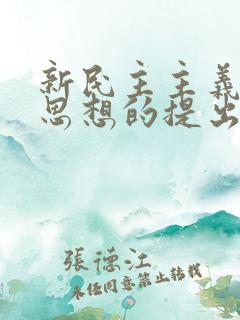 新民主主義
思想的提出
張德江
未經同意禁止轉載